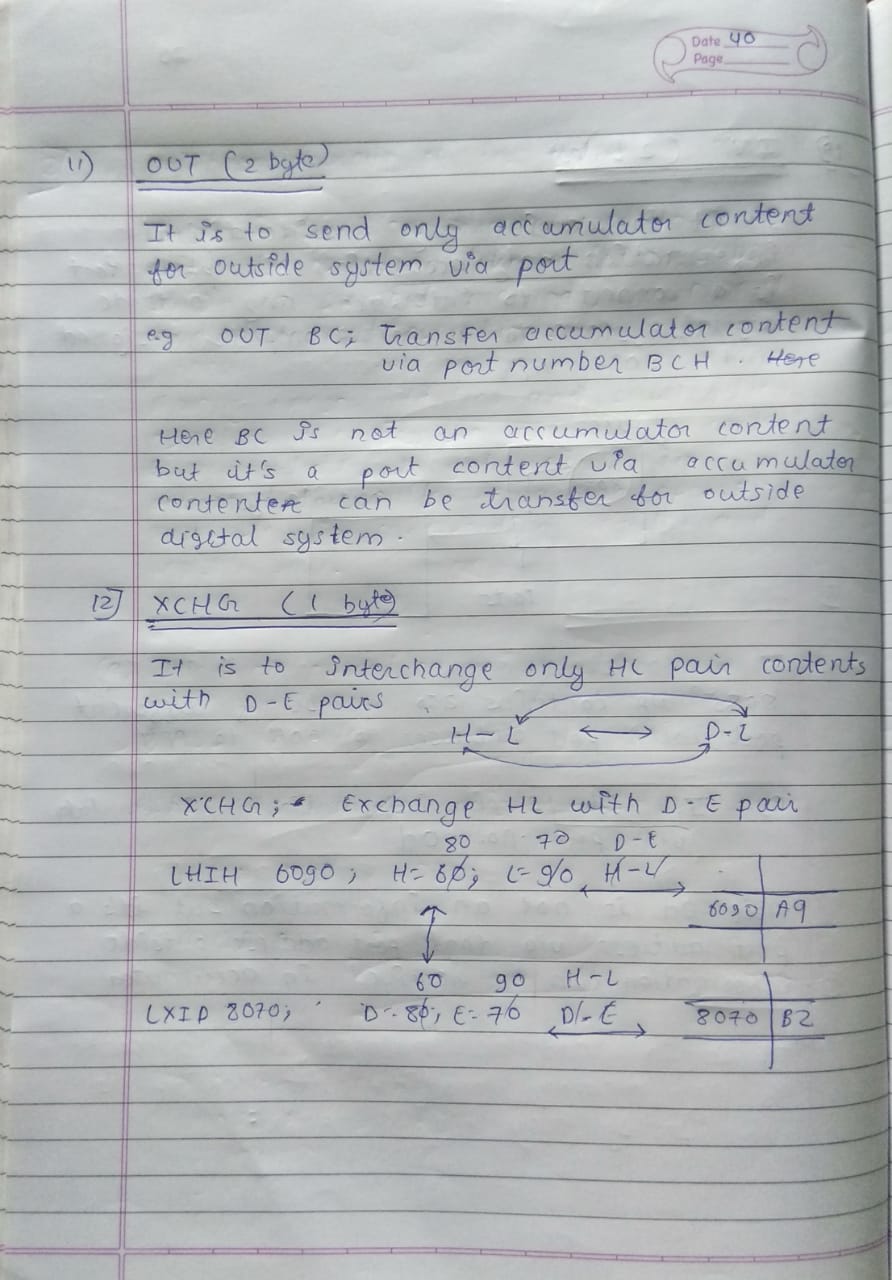 Date 40
Page
11) OUT (2 byte)
It is to send only accamulator content
for outside system via port
e.g OUT BC; transfer accumulator content
via port number BCH . Here
Here BC is not an accumulator content
but it's a port content via accumulator
contenter can be transfer for outside
digital system.
12] XCHG (1 byte)
It is to interchange only HL pair contents
with D-E pairs
H-L ⟷ D-L
XCHG; Exchange HL with D-E pair
80 70 D-E
LHIH 6090; H= 60; L= 90 H-L
6090 A9
60 90 H-L
LXID 8070; D= 80; E= 70 D-E
8070 B2